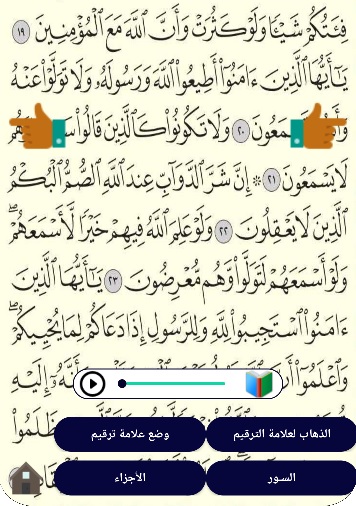 فِئَتُكُمْ شَيْـًٔا وَلَوْ كَثُرَتْ وَأَنَّ ٱللَّهَ مَعَ ٱلْمُؤْمِنِينَ ١٩
يَـٰٓأَيُّهَا ٱلَّذِينَ ءَامَنُوٓا۟ أَطِيعُوا۟ ٱللَّهَ وَرَسُولَهُۥ وَلَا تَوَلَّوْا۟ عَنْهُ
٢٠ وَلَا تَكُونُوا۟ كَٱلَّذِينَ قَالُوا۟
لَا يَسْمَعُونَ ٢١ ۞ إِنَّ شَرَّ ٱلدَّوَآبِّ عِندَ ٱللَّهِ ٱلصُّمُّ ٱلْبُكْمُ
ٱلَّذِينَ لَا يَعْقِلُونَ ٢٢ وَلَوْ عَلِمَ ٱللَّهُ فِيهِمْ خَيْرًا لَّأَسْمَعَهُمْ ۖ
وَلَوْ أَسْمَعَهُمْ لَتَوَلَّوا۟ وَّهُم مُّعْرِضُونَ ٢٣ يَـٰٓأَيُّهَا ٱلَّذِينَ
ءَامَنُوا۟ ٱسْتَجِيبُوا۟ لِلَّهِ وَلِلرَّسُولِ إِذَا دَعَاكُمْ لِمَا يُحْيِيكُمْ ۖ
وَٱعْلَمُوٓا۟ إِلَيْهِ
ظَلَمُوا۟
الذهاب لعلامة الترقيم
وضع علامة ترقيم
السـور
الأجزاء